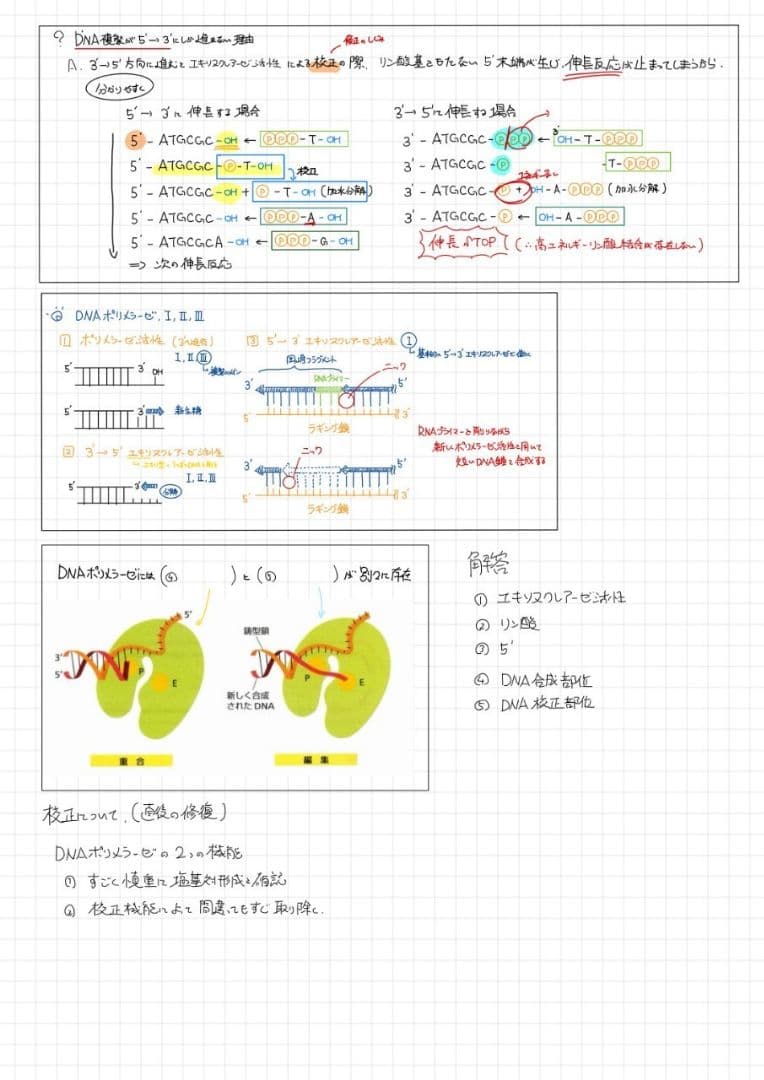 ? DNA複製が5'→3'にしか進まない理由
校正のしくみ
A. 3'→5'方向に進むとエキソヌクレアーゼ活性による校正の際、リン酸基をもたない5'末端が生じ、伸長反応が止まってしまうから.
分かりやすく
5'→3'に伸長する場合
5'-ATGCGC-OH ← ⓅⓅⓅ-T-OH
5'-ATGCGC-Ⓟ-T-OH
校正
5'-ATGCGC-OH + Ⓟ-T-OH (加水分解)
5'-ATGCGC-OH ← ⓅⓅⓅ-A-OH
5'-ATGCGCA-OH ← ⓅⓅⓅ-G-OH
⇒ 次の伸長反応
3'→5'に伸長する場合
3'-ATGCGC-ⓅⓅⓅ ← 3' OH-T-ⓅⓅⓅ
3'-ATGCGC-Ⓟ -T-ⓅⓅⓅ
3'-ATGCGC-Ⓟ + OH-A-ⓅⓅⓅ (加水分解)
3'-ATGCGC-Ⓟ ← OH-A-ⓅⓅⓅ
伸長STOP (∴高エネルギーリン酸結合が存在しない)
DNAポリメラーゼ, Ⅰ, Ⅱ, Ⅲ
① ポリメラーゼ活性
Ⅰ, Ⅱ, Ⅲ
5' 3' OH
5' 3' 新生鎖
② 3'→5' エキソヌクレアーゼ活性
Ⅰ, Ⅱ, Ⅲ
5' 3' 分解
③ 5'→3' エキソヌクレアーゼ活性 Ⅰ
岡崎フラグメント
RNAプライマー
ニック
3' 5'
5' 3'
ラギング鎖
ニック
3' 5'
5' 3'
ラギング鎖
RNAプライマーを削りながら
新しくポリメラーゼ活性を用いて
短いDNA鎖を合成する
DNAポリメラーゼには(④ )と(⑤ )が別々に存在
5'
3'
5'
P
E
重合
鋳型鎖
新しく合成
されたDNA
P
E
編集
解答
① エキソヌクレアーゼ活性
② リン酸
③ 5'
④ DNA合成部位
⑤ DNA校正部位
校正について. (直後の修復)
DNAポリメラーゼの2つの機能
① すごく慎重に塩基対形成を確認
② 校正機能によって間違ってもすぐ取り除く.